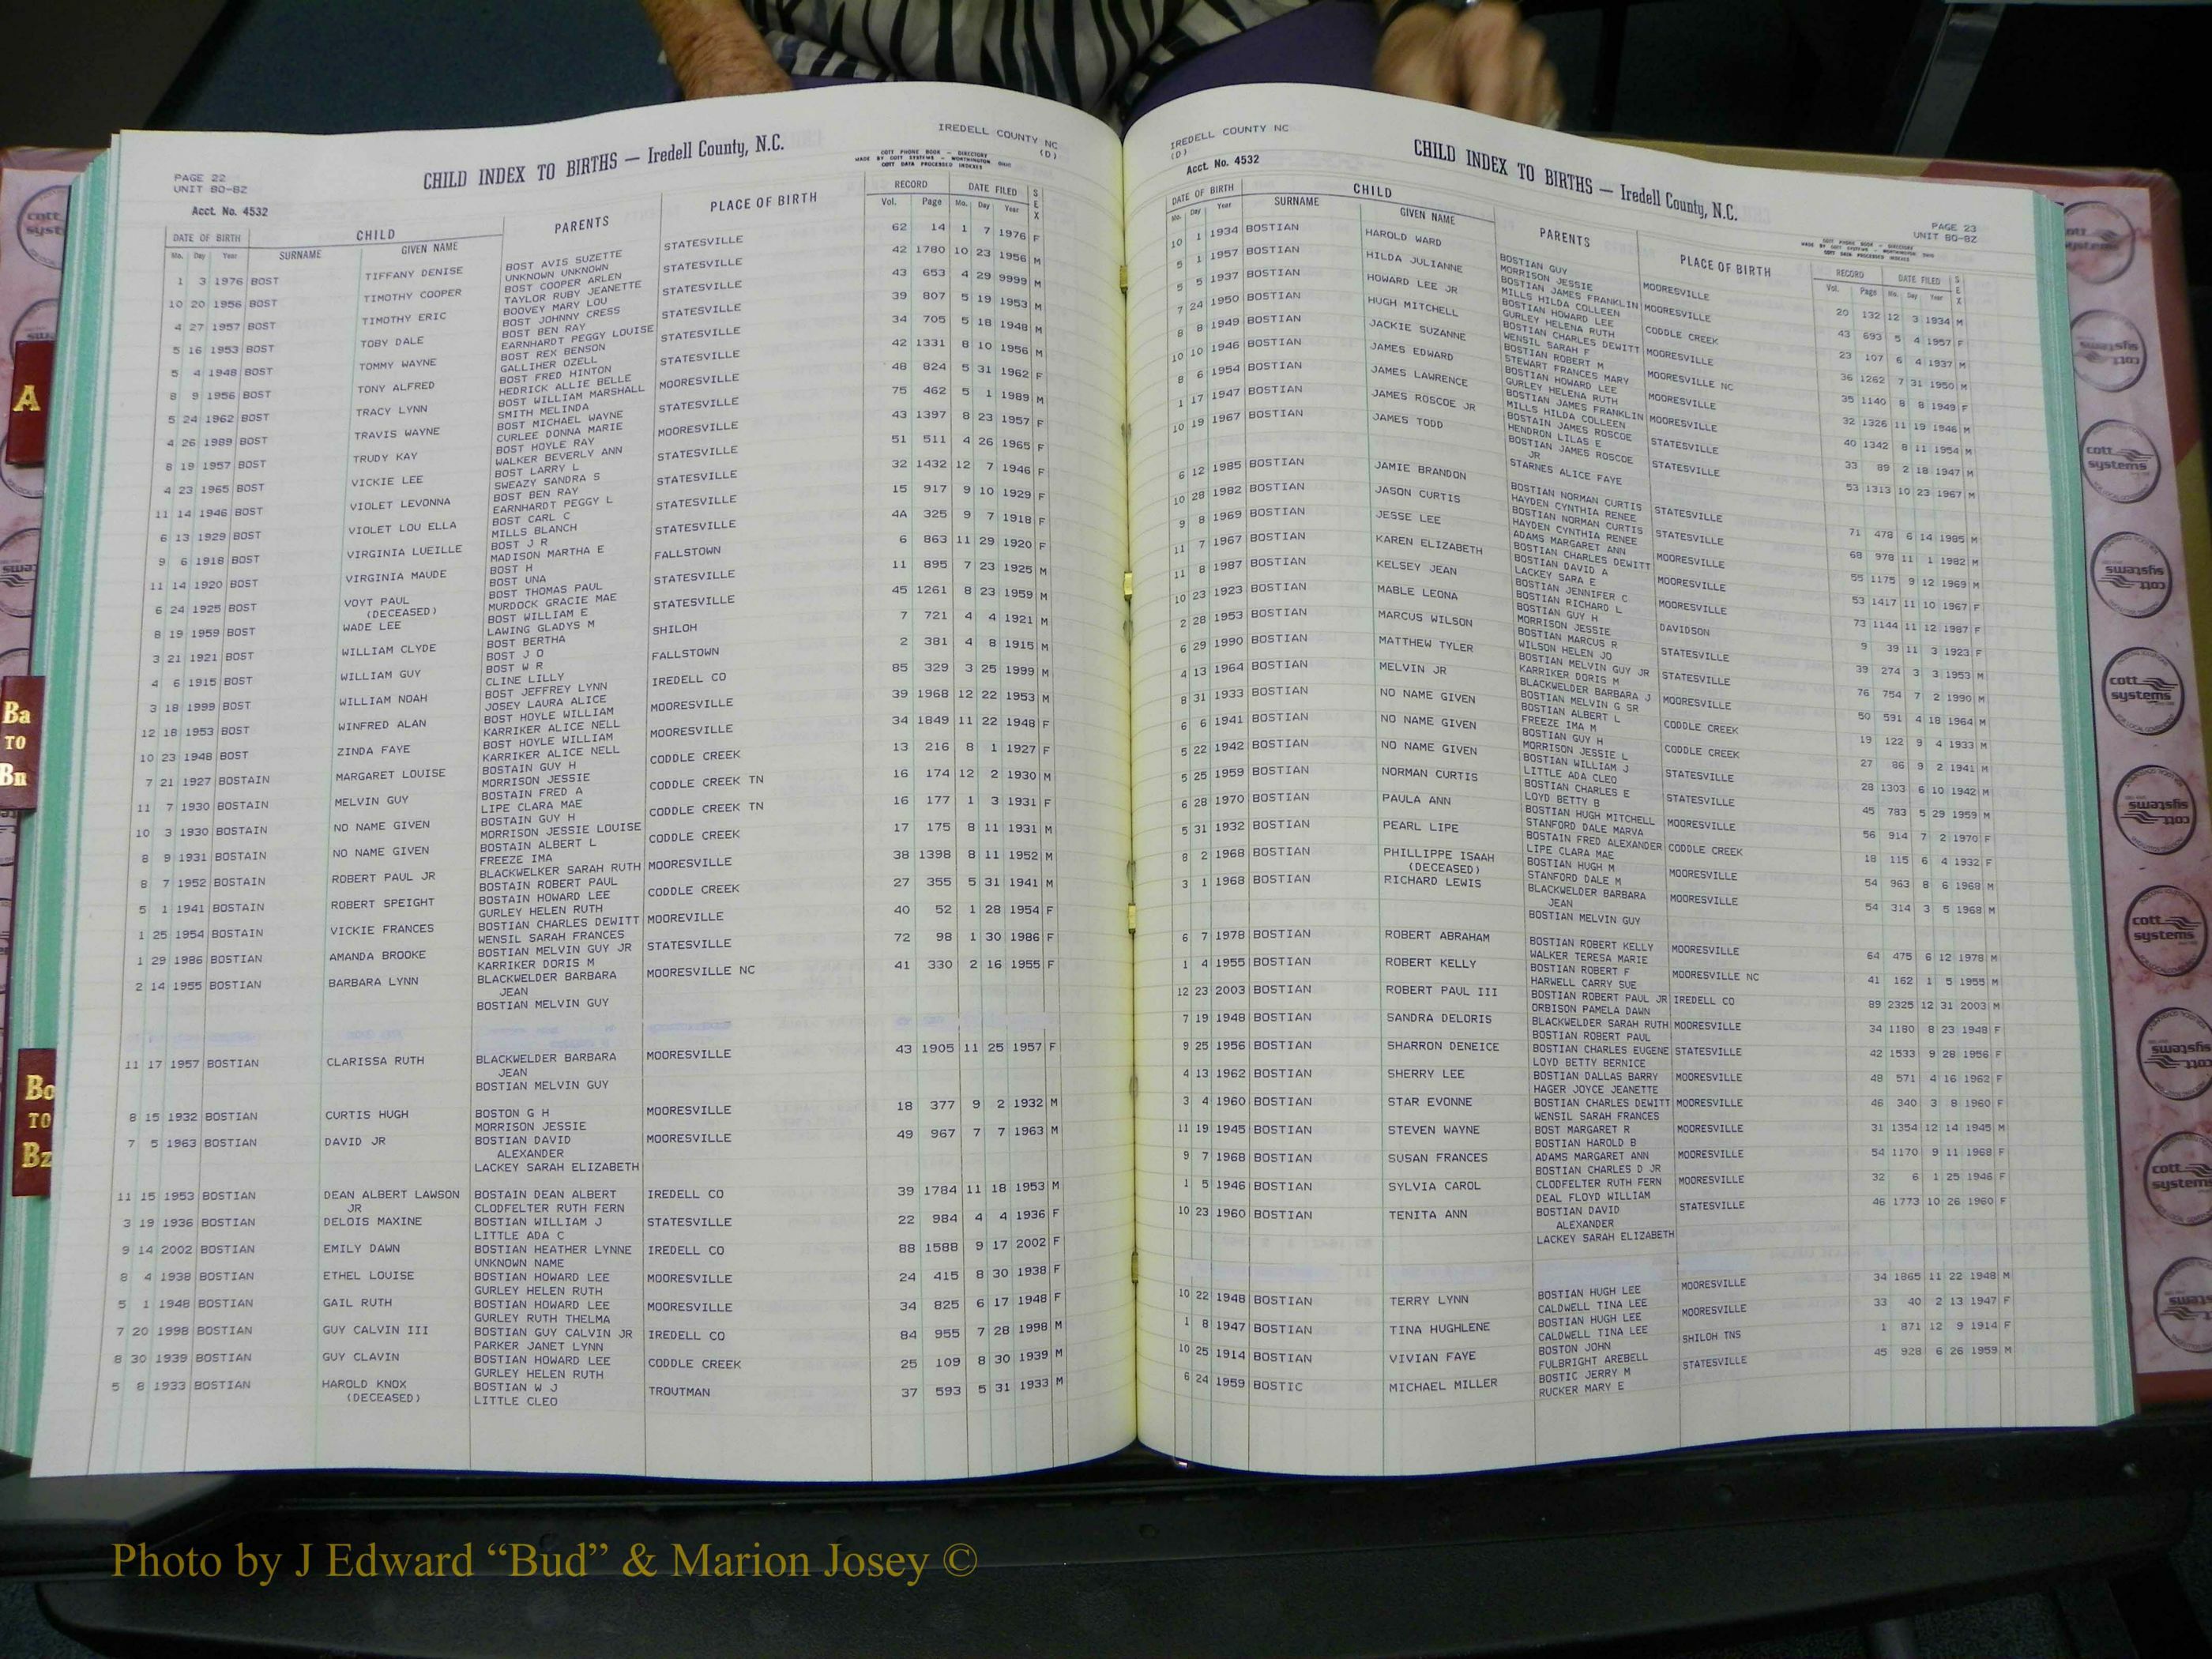 IREDELL COUNTY NC
(D)
CHILD INDEX TO BIRTHS — Iredell County, N.C.
COTT PHONE BOOK - DIRECTORY
MADE BY COTT SYSTEMS - WORTHINGTON OHIO
COTT DATA PROCESSED INDEXES
PAGE 22
UNIT BO-BZ
Acct. No. 4532
DATE OF BIRTH CHILD PARENTS PLACE OF BIRTH RECORD DATE FILED SEX
Mo. Day Year SURNAME GIVEN NAME Vol. Page Mo. Day Year
1 3 1976 BOST TIFFANY DENISE BOST AVIS SUZETTE STATESVILLE 62 14 1 7 1976 F
UNKNOWN UNKNOWN
10 20 1956 BOST TIMOTHY COOPER BOST COOPER ARLEN STATESVILLE 42 1780 10 23 1956 M
TAYLOR RUBY JEANETTE
4 27 1957 BOST TIMOTHY ERIC BOOVEY MARY LOU STATESVILLE 43 653 4 29 9999 M
BOST JOHNNY CRESS
5 16 1953 BOST TOBY DALE BOST BEN RAY STATESVILLE 39 807 5 19 1953 M
EARNHARDT PEGGY LOUISE
5 4 1948 BOST TOMMY WAYNE BOST REX BENSON STATESVILLE 34 705 5 18 1948 M
GALLIHER OZELL
8 9 1956 BOST TONY ALFRED BOST FRED HINTON STATESVILLE 42 1331 8 10 1956 M
HEDRICK ALLIE BELLE
5 24 1962 BOST TRACY LYNN BOST WILLIAM MARSHALL MOORESVILLE 48 824 5 31 1962 F
SMITH MELINDA
4 26 1989 BOST TRAVIS WAYNE BOST MICHAEL WAYNE STATESVILLE 75 462 5 1 1989 M
CURLEE DONNA MARIE
8 19 1957 BOST TRUDY KAY BOST HOYLE RAY MOORESVILLE 43 1397 8 23 1957 F
WALKER BEVERLY ANN
4 23 1965 BOST VICKIE LEE BOST LARRY L STATESVILLE 51 511 4 26 1965 F
SWEAZY SANDRA S
11 14 1946 BOST VIOLET LEVONNA BOST BEN RAY STATESVILLE 32 1432 12 7 1946 F
EARNHARDT PEGGY L
6 13 1929 BOST VIOLET LOU ELLA BOST CARL C STATESVILLE 15 917 9 10 1929 F
MILLS BLANCH
9 6 1918 BOST VIRGINIA LUEILLE BOST J R STATESVILLE 4A 325 9 7 1918 F
MADISON MARTHA E
11 14 1920 BOST VIRGINIA MAUDE BOST H FALLSTOWN 6 863 11 29 1920 F
BOST UNA
6 24 1925 BOST VOYT PAUL BOST THOMAS PAUL STATESVILLE 11 895 7 23 1925 M
(DECEASED) MURDOCK GRACIE MAE
8 19 1959 BOST WADE LEE BOST WILLIAM E STATESVILLE 45 1261 8 23 1959 M
LAWING GLADYS M
3 21 1921 BOST WILLIAM CLYDE BOST BERTHA SHILOH 7 721 4 4 1921 M
BOST J O
4 6 1915 BOST WILLIAM GUY BOST W R FALLSTOWN 2 381 4 8 1915 M
CLINE LILLY
3 18 1999 BOST WILLIAM NOAH BOST JEFFREY LYNN IREDELL CO 85 329 3 25 1999 M
JOSEY LAURA ALICE
12 18 1953 BOST WINFRED ALAN BOST HOYLE WILLIAM MOORESVILLE 39 1968 12 22 1953 M
KARRIKER ALICE NELL
10 23 1948 BOST ZINDA FAYE BOST HOYLE WILLIAM MOORESVILLE 34 1849 11 22 1948 F
KARRIKER ALICE NELL
7 21 1927 BOSTAIN MARGARET LOUISE BOSTAIN GUY H CODDLE CREEK 13 216 8 1 1927 F
MORRISON JESSIE
11 7 1930 BOSTAIN MELVIN GUY BOSTAIN FRED A CODDLE CREEK TN 16 174 12 2 1930 M
LIPE CLARA MAE
10 3 1930 BOSTAIN NO NAME GIVEN BOSTAIN GUY H CODDLE CREEK TN 16 177 1 3 1931 F
MORRISON JESSIE LOUISE
8 9 1931 BOSTAIN NO NAME GIVEN BOSTAIN ALBERT L CODDLE CREEK 17 175 8 11 1931 M
FREEZE IMA
8 7 1952 BOSTAIN ROBERT PAUL JR BLACKWELKER SARAH RUTH MOORESVILLE 38 1398 8 11 1952 M
BOSTAIN ROBERT PAUL
5 1 1941 BOSTAIN ROBERT SPEIGHT BOSTAIN HOWARD LEE CODDLE CREEK 27 355 5 31 1941 M
GURLEY HELEN RUTH
1 25 1954 BOSTAIN VICKIE FRANCES BOSTIAN CHARLES DEWITT MOOREVILLE 40 52 1 28 1954 F
WENSIL SARAH FRANCES
1 29 1986 BOSTIAN AMANDA BROOKE BOSTIAN MELVIN GUY JR STATESVILLE 72 98 1 30 1986 F
KARRIKER DORIS M
2 14 1955 BOSTIAN BARBARA LYNN BLACKWELDER BARBARA MOORESVILLE NC 41 330 2 16 1955 F
JEAN
BOSTIAN MELVIN GUY
11 17 1957 BOSTIAN CLARISSA RUTH BLACKWELDER BARBARA MOORESVILLE 43 1905 11 25 1957 F
JEAN
BOSTIAN MELVIN GUY
8 15 1932 BOSTIAN CURTIS HUGH BOSTON G H MOORESVILLE 18 377 9 2 1932 M
MORRISON JESSIE
7 5 1963 BOSTIAN DAVID JR BOSTIAN DAVID MOORESVILLE 49 967 7 7 1963 M
ALEXANDER
LACKEY SARAH ELIZABETH
11 15 1953 BOSTIAN DEAN ALBERT LAWSON BOSTAIN DEAN ALBERT IREDELL CO 39 1784 11 18 1953 M
JR CLODFELTER RUTH FERN
3 19 1936 BOSTIAN DELOIS MAXINE BOSTIAN WILLIAM J STATESVILLE 22 984 4 4 1936 F
LITTLE ADA C
9 14 2002 BOSTIAN EMILY DAWN BOSTIAN HEATHER LYNNE IREDELL CO 88 1588 9 17 2002 F
UNKNOWN NAME
8 4 1938 BOSTIAN ETHEL LOUISE BOSTIAN HOWARD LEE MOORESVILLE 24 415 8 30 1938 F
GURLEY HELEN RUTH
5 1 1948 BOSTIAN GAIL RUTH BOSTIAN HOWARD LEE MOORESVILLE 34 825 6 17 1948 F
GURLEY RUTH THELMA
7 20 1998 BOSTIAN GUY CALVIN III BOSTIAN GUY CALVIN JR IREDELL CO 84 955 7 28 1998 M
PARKER JANET LYNN
8 30 1939 BOSTIAN GUY CLAVIN BOSTIAN HOWARD LEE CODDLE CREEK 25 109 8 30 1939 M
GURLEY HELEN RUTH
5 8 1933 BOSTIAN HAROLD KNOX BOSTIAN W J TROUTMAN 37 593 5 31 1933 M
(DECEASED) LITTLE CLEO
IREDELL COUNTY NC
(D)
Acct. No. 4532
CHILD INDEX TO BIRTHS — Iredell County, N.C.
PAGE 23
UNIT BO-BZ
COTT PHONE BOOK - DIRECTORY
MADE BY COTT SYSTEMS - WORTHINGTON OHIO
COTT DATA PROCESSED INDEXES
DATE OF BIRTH CHILD PARENTS PLACE OF BIRTH RECORD DATE FILED SEX
Mo. Day Year SURNAME GIVEN NAME Vol. Page Mo. Day Year
10 1 1934 BOSTIAN HAROLD WARD BOSTIAN GUY MOORESVILLE 20 132 12 3 1934 M
MORRISON JESSIE
5 1 1957 BOSTIAN HILDA JULIANNE BOSTIAN JAMES FRANKLIN MOORESVILLE 43 693 5 4 1957 F
MILLS HILDA COLLEEN
5 5 1937 BOSTIAN HOWARD LEE JR BOSTIAN HOWARD LEE CODDLE CREEK 23 107 6 4 1937 M
GURLEY HELENA RUTH
7 24 1950 BOSTIAN HUGH MITCHELL BOSTIAN CHARLES DEWITT MOORESVILLE 36 1262 7 31 1950 M
WENSIL SARAH F
8 8 1949 BOSTIAN JACKIE SUZANNE BOSTIAN ROBERT M MOORESVILLE NC 35 1140 8 8 1949 F
STEWART FRANCES MARY
10 10 1946 BOSTIAN JAMES EDWARD BOSTIAN HOWARD LEE MOORESVILLE 32 1326 11 19 1946 M
GURLEY HELENA RUTH
8 6 1954 BOSTIAN JAMES LAWRENCE BOSTIAN JAMES FRANKLIN MOORESVILLE 40 1342 8 11 1954 M
MILLS HILDA COLLEEN
1 17 1947 BOSTIAN JAMES ROSCOE JR BOSTAIN JAMES ROSCOE STATESVILLE 33 89 2 18 1947 M
HENDRON LILAS E
10 19 1967 BOSTIAN JAMES TODD BOSTIAN JAMES ROSCOE STATESVILLE 53 1313 10 23 1967 M
JR
STARNES ALICE FAYE
6 12 1985 BOSTIAN JAMIE BRANDON BOSTIAN NORMAN CURTIS STATESVILLE 71 478 6 14 1985 M
HAYDEN CYNTHIA RENEE
10 28 1982 BOSTIAN JASON CURTIS BOSTIAN NORMAN CURTIS STATESVILLE 68 978 11 1 1982 M
HAYDEN CYNTHIA RENEE
9 8 1969 BOSTIAN JESSE LEE ADAMS MARGARET ANN MOORESVILLE 55 1175 9 12 1969 M
BOSTIAN CHARLES DEWITT
11 7 1967 BOSTIAN KAREN ELIZABETH BOSTIAN DAVID A MOORESVILLE 53 1417 11 10 1967 F
LACKEY SARA E
11 8 1987 BOSTIAN KELSEY JEAN BOSTIAN JENNIFER C MOORESVILLE 73 1144 11 12 1987 F
BOSTIAN RICHARD L
10 23 1923 BOSTIAN MABLE LEONA BOSTIAN GUY H DAVIDSON 9 39 11 3 1923 F
MORRISON JESSIE
2 28 1953 BOSTIAN MARCUS WILSON BOSTIAN MARCUS R STATESVILLE 39 274 3 3 1953 M
WILSON HELEN JO
6 29 1990 BOSTIAN MATTHEW TYLER BOSTIAN MELVIN GUY JR STATESVILLE 76 754 7 2 1990 M
KARRIKER DORIS M
4 13 1964 BOSTIAN MELVIN JR BLACKWELDER BARBARA J MOORESVILLE 50 591 4 18 1964 M
BOSTIAN MELVIN G SR
8 31 1933 BOSTIAN NO NAME GIVEN BOSTIAN ALBERT L CODDLE CREEK 19 122 9 4 1933 M
FREEZE IMA M
6 6 1941 BOSTIAN NO NAME GIVEN BOSTIAN GUY H CODDLE CREEK 27 86 9 2 1941 M
MORRISON JESSIE L
5 22 1942 BOSTIAN NO NAME GIVEN BOSTIAN WILLIAM J STATESVILLE 28 1303 6 10 1942 M
LITTLE ADA CLEO
5 25 1959 BOSTIAN NORMAN CURTIS BOSTIAN CHARLES E STATESVILLE 45 783 5 29 1959 M
LOYD BETTY B
6 28 1970 BOSTIAN PAULA ANN BOSTIAN HUGH MITCHELL MOORESVILLE 56 914 7 2 1970 F
STANFORD DALE MARVA
5 31 1932 BOSTIAN PEARL LIPE BOSTAIN FRED ALEXANDER CODDLE CREEK 18 115 6 4 1932 F
LIPE CLARA MAE
8 2 1968 BOSTIAN PHILLIPPE ISAAH BOSTIAN HUGH M MOORESVILLE 54 963 8 6 1968 M
(DECEASED) STANFORD DALE M
3 1 1968 BOSTIAN RICHARD LEWIS BLACKWELDER BARBARA MOORESVILLE 54 314 3 5 1968 M
JEAN
BOSTIAN MELVIN GUY
6 7 1978 BOSTIAN ROBERT ABRAHAM BOSTIAN ROBERT KELLY MOORESVILLE 64 475 6 12 1978 M
WALKER TERESA MARIE
1 4 1955 BOSTIAN ROBERT KELLY BOSTIAN ROBERT F MOORESVILLE NC 41 162 1 5 1955 M
HARWELL CARRY SUE
12 23 2003 BOSTIAN ROBERT PAUL III BOSTIAN ROBERT PAUL JR IREDELL CO 89 2325 12 31 2003 M
ORBISON PAMELA DAWN
7 19 1948 BOSTIAN SANDRA DELORIS BLACKWELDER SARAH RUTH MOORESVILLE 34 1180 8 23 1948 F
BOSTIAN ROBERT PAUL
9 25 1956 BOSTIAN SHARRON DENEICE BOSTIAN CHARLES EUGENE STATESVILLE 42 1533 9 28 1956 F
LOYD BETTY BERNICE
4 13 1962 BOSTIAN SHERRY LEE BOSTIAN DALLAS BARRY MOORESVILLE 48 571 4 16 1962 F
HAGER JOYCE JEANETTE
3 4 1960 BOSTIAN STAR EVONNE BOSTIAN CHARLES DEWITT MOORESVILLE 46 340 3 8 1960 F
WENSIL SARAH FRANCES
11 19 1945 BOSTIAN STEVEN WAYNE BOST MARGARET R MOORESVILLE 31 1354 12 14 1945 M
BOSTIAN HAROLD B
9 7 1968 BOSTIAN SUSAN FRANCES ADAMS MARGARET ANN MOORESVILLE 54 1170 9 11 1968 F
BOSTIAN CHARLES D JR
1 5 1946 BOSTIAN SYLVIA CAROL CLODFELTER RUTH FERN MOORESVILLE 32 6 1 25 1946 F
DEAL FLOYD WILLIAM
10 23 1960 BOSTIAN TENITA ANN BOSTIAN DAVID STATESVILLE 46 1773 10 26 1960 F
ALEXANDER
LACKEY SARAH ELIZABETH
10 22 1948 BOSTIAN TERRY LYNN BOSTIAN HUGH LEE MOORESVILLE 34 1865 11 22 1948 M
CALDWELL TINA LEE
1 8 1947 BOSTIAN TINA HUGHLENE BOSTIAN HUGH LEE MOORESVILLE 33 40 2 13 1947 F
CALDWELL TINA LEE
10 25 1914 BOSTIAN VIVIAN FAYE BOSTON JOHN SHILOH TNS 1 871 12 9 1914 F
FULBRIGHT AREBELL
6 24 1959 BOSTIC MICHAEL MILLER BOSTIC JERRY M STATESVILLE 45 928 6 26 1959 M
RUCKER MARY E
A
Ba
TO
Bn
Bo
TO
Bz
cott
systems
cott
systems
cott
systems
cott
systems
cott
systems
Photo by J Edward “Bud” & Marion Josey ©